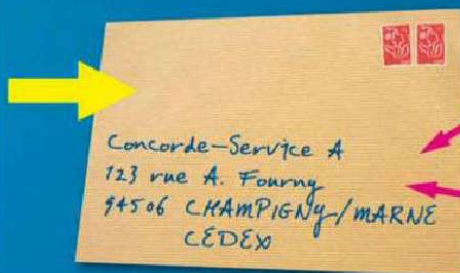 Concorde-Service A
123 rue A. Fourny
94506 CHAMPIGNY/MARNE
CÉDEX